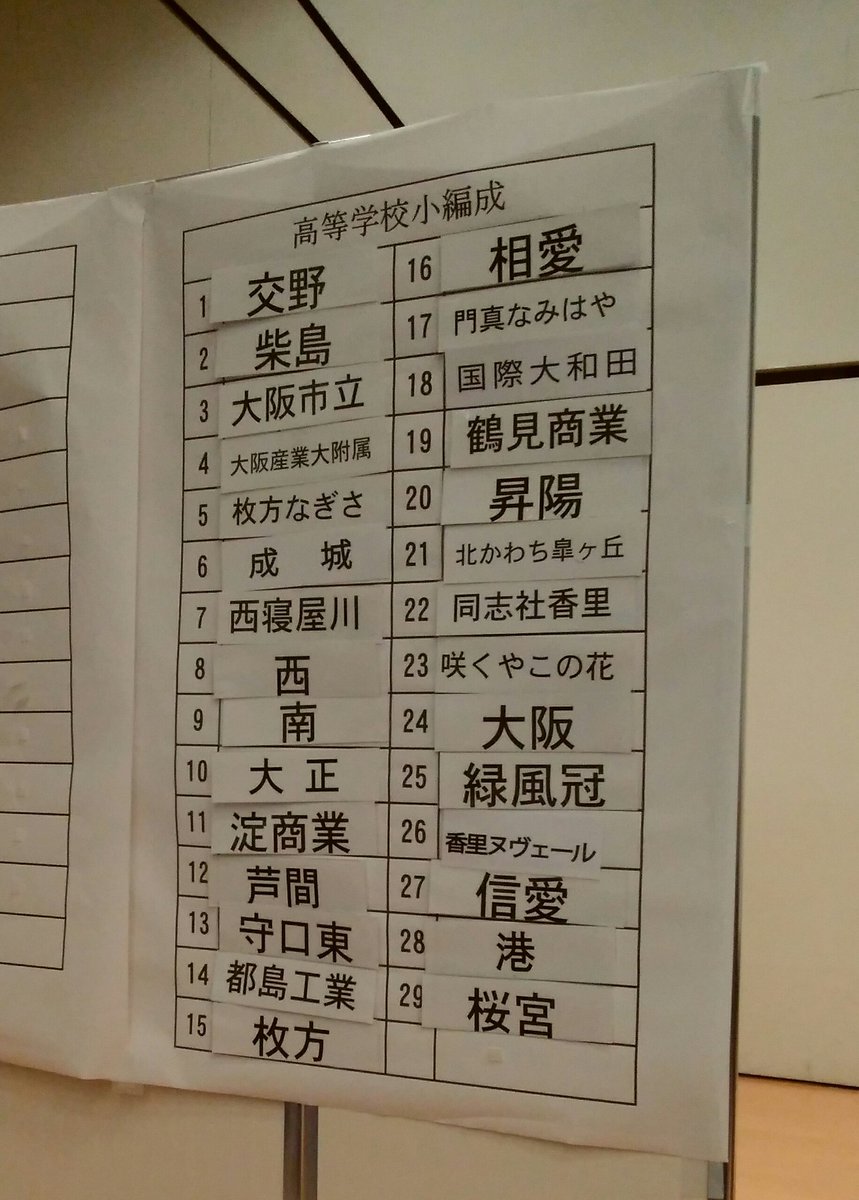 高等学校小編成
1 交野
2 柴島
3 大阪市立
4 大阪産業大附属
5 枚方なぎさ
6 成 城
7 西寝屋川
8 西
9 南
10 大 正
11 淀商業
12 芦間
13 守口東
14 都島工業
15 枚方
16 相愛
17 門真なみはや
18 国際大和田
19 鶴見商業
20 昇陽
21 北かわち皐ヶ丘
22 同志社香里
23 咲くやこの花
24 大阪
25 緑風冠
26 香里ヌヴェール
27 信愛
28 港
29 桜宮